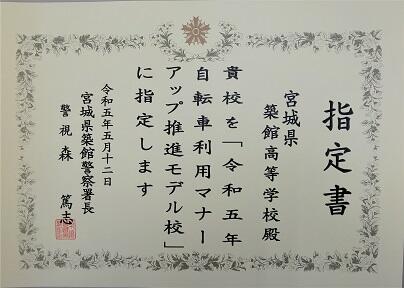 指定書
宮城県
築館高等学校殿
貴校を「令和五年
自転車利用マナー
アップ推進モデル校」
に指定します
令和五年五月十二日
宮城県築館警察署長
警視森 篤志